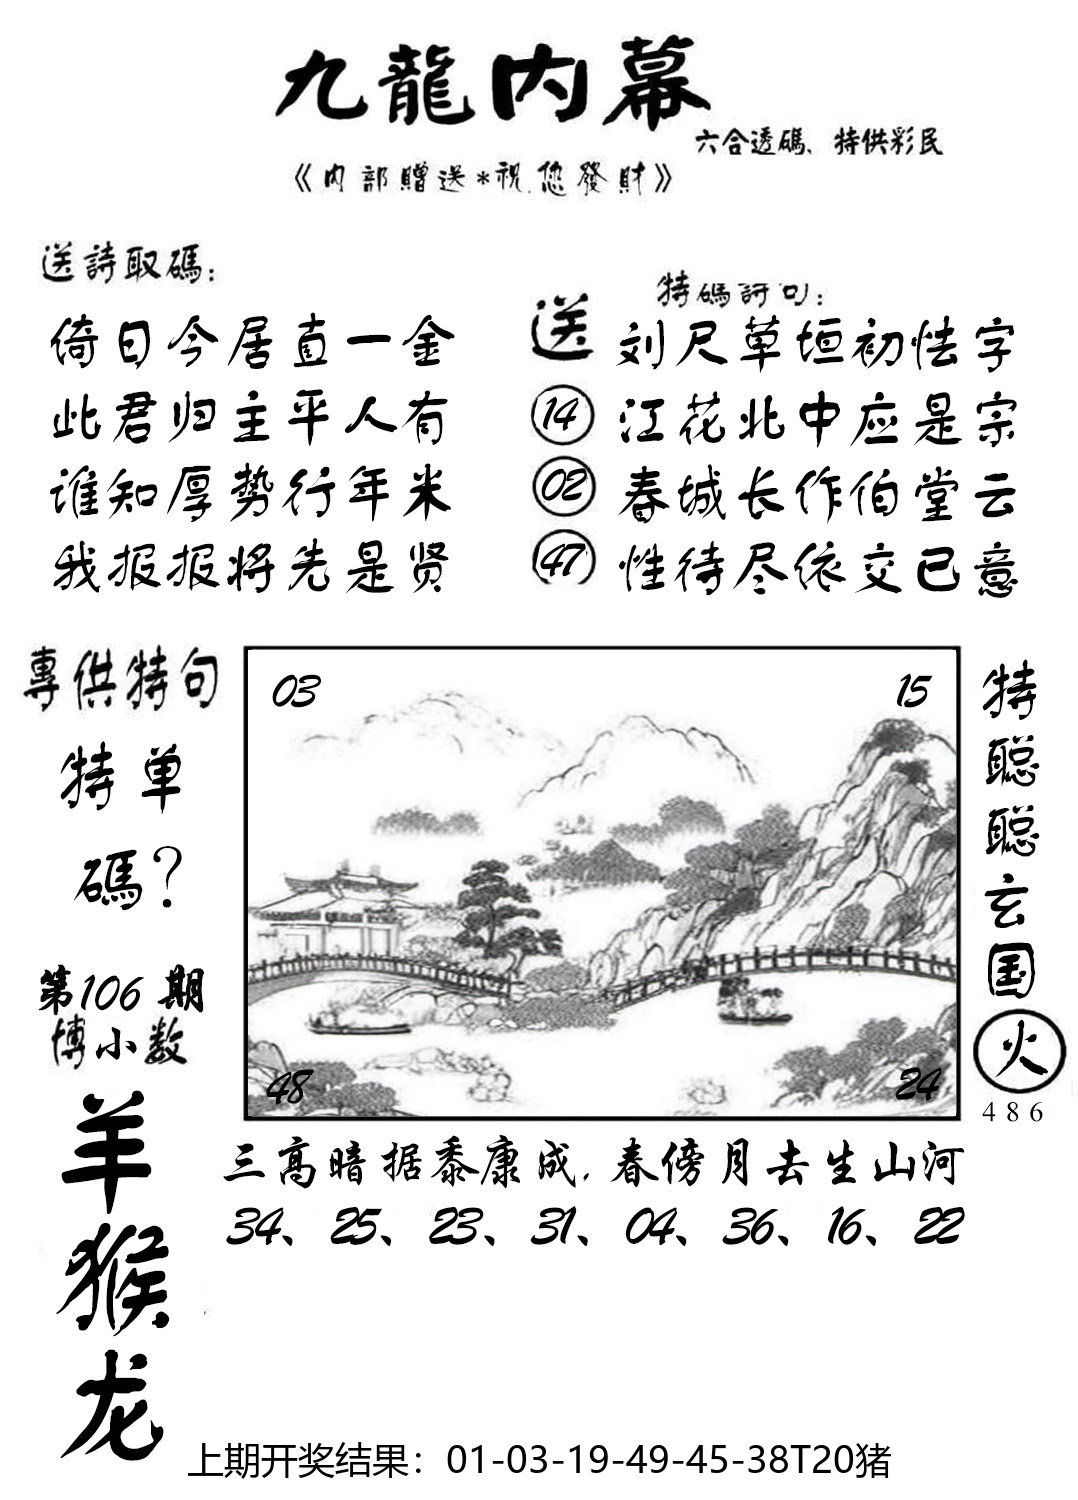 九龍内幕
六合透碼、特供彩民
《内部贈送*祝您發財》
送詩取碼：
倚日今居直一金
此君归主平人有
谁知厚勢行年米
我报报将先是贤
特碼詩句：
送
14
02
47
刘尺草垣初怯字
江花北中应是宗
春城长作伯堂云
性待尽依交已意
專供特句
特单
碼？
第106期
博小数
羊
猴
龙
03
15
48
24
特聪聪玄国
火
486
三高暗据黍康成，春傍月去生山河
34、25、23、31、04、36、16、22
上期开奖结果：01-03-19-49-45-38T20猪